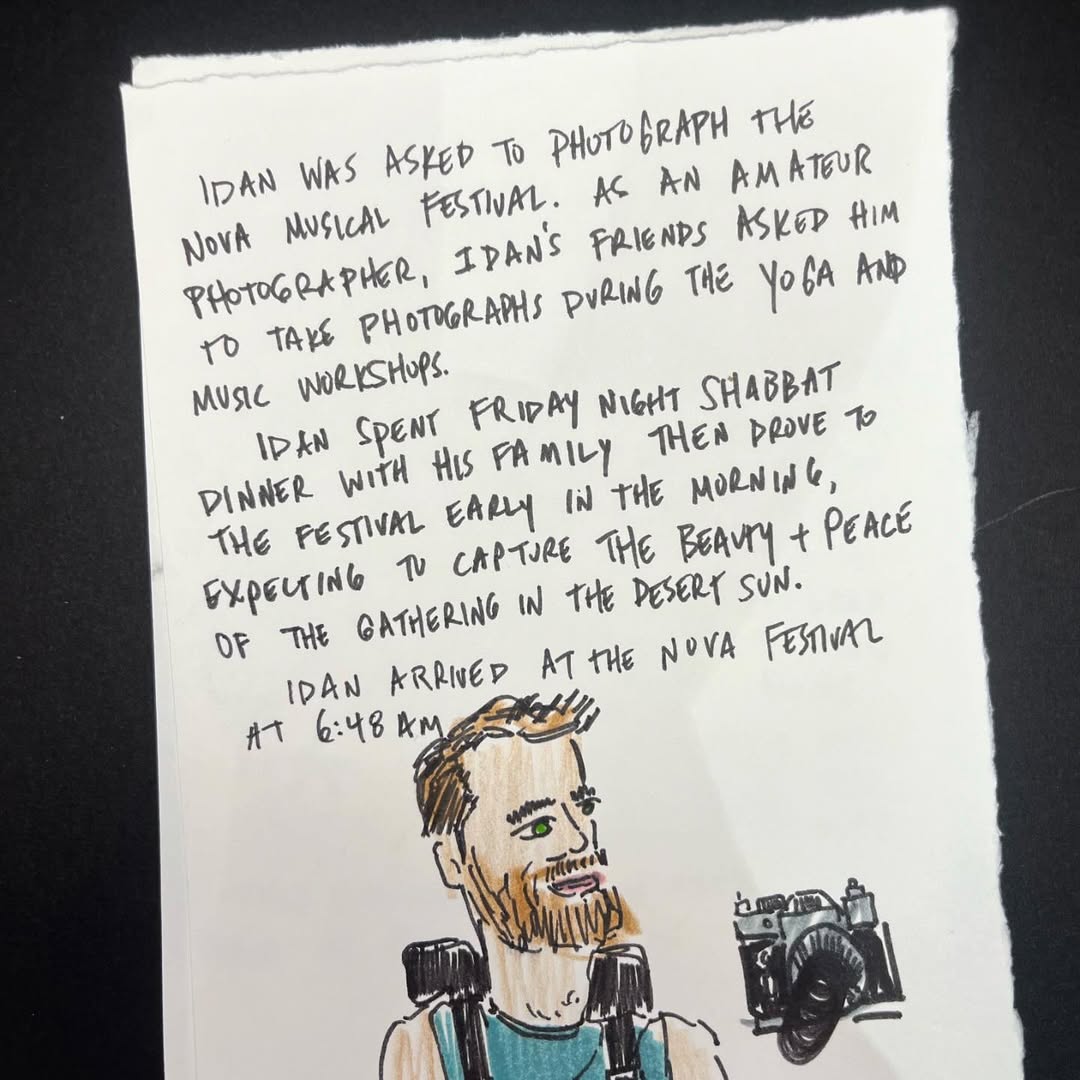 IDAN WAS ASKED TO PHOTOGRAPH THE
NOVA MUSICAL FESTIVAL. AS AN AMATEUR
PHOTOGRAPHER, IDAN'S FRIENDS ASKED HIM
TO TAKE PHOTOGRAPHS DURING THE YOGA AND
MUSIC WORKSHOPS.
IDAN SPENT FRIDAY NIGHT SHABBAT
DINNER WITH HIS FAMILY THEN DROVE TO
THE FESTIVAL EARLY IN THE MORNING,
EXPECTING TO CAPTURE THE BEAUTY + PEACE
OF THE GATHERING IN THE DESERT SUN.
IDAN ARRIVED AT THE NOVA FESTIVAL
AT 6:48 AM